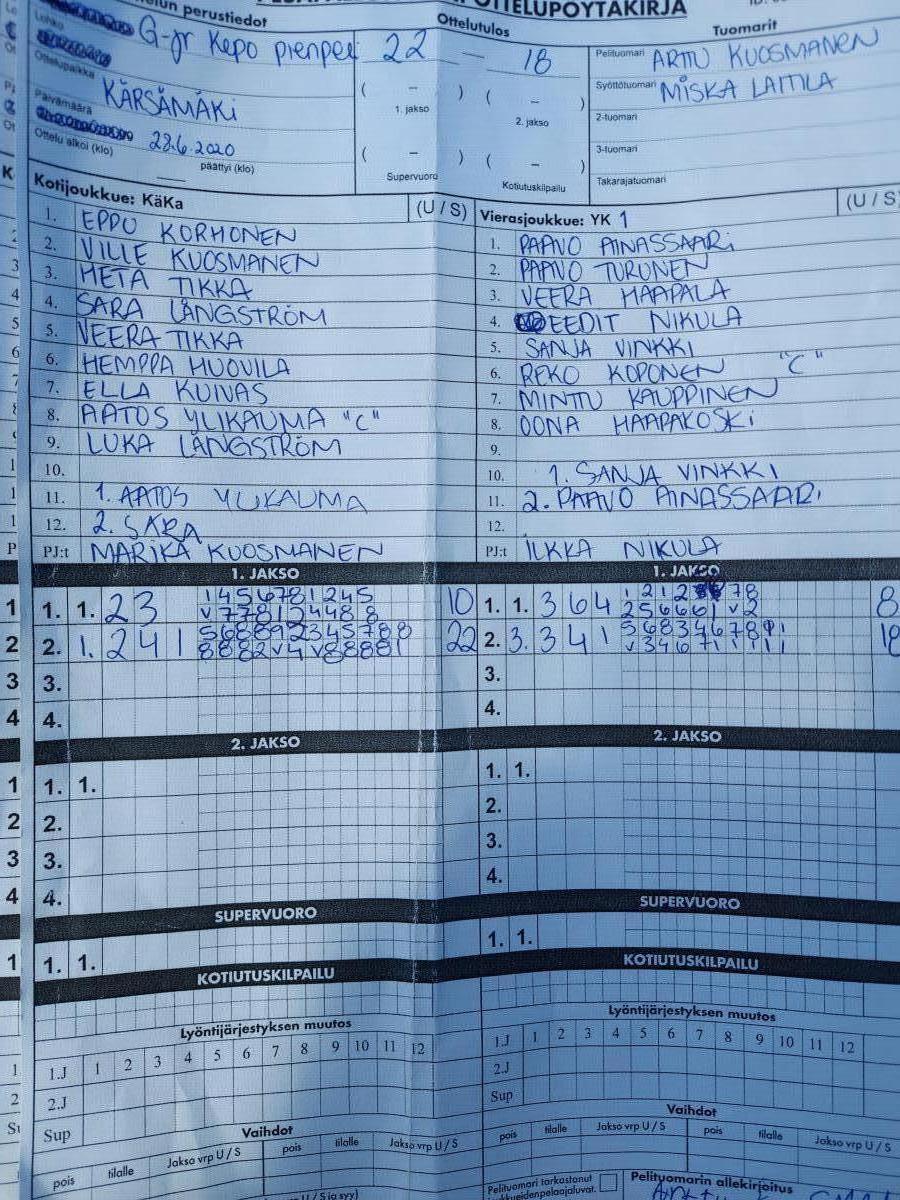 OTTELUPÖYTÄKIRJA
perustiedot
Ottelutulos
Tuomarit
Lohko
G-jr Kepo pienpeli
22 – 18
Pelituomari ARTTU KUOSMANEN
Ottelupaikka
KÄRSÄMÄKI
( – ) ( – )
1. jakso
2. jakso
Syöttötuomari MISKA LAITILA
2-tuomari
Päivämäärä
28.6.2020
3-tuomari
Ottelu alkoi (klo)
päättyi (klo)
( – ) ( – )
Supervuoro
Kotiutuskilpailu
Takarajatuomari
Kotijoukkue: KäKa (U / S)
1. EPPU KORHONEN
2. VILLE KUOSMANEN
3. HETA TIKKA
4. SARA LÅNGSTRÖM
5. VEERA TIKKA
6. HEMPPA HUOVILA
7. ELLA KUIVAS
8. AATOS YLIKAUMA "C"
9. LUKA LÅNGSTRÖM
10.
11. 1. AATOS YLIKAUMA
12. 2. SARA
PJ:t MARIKA KUOSMANEN
Vierasjoukkue: YK 1 (U / S)
1. PAAVO AINASSAARI
2. PAAVO TURUNEN
3. VEERA HAAPALA
4. EEDIT NIKULA
5. SANJA VINKKI
6. REKO KOPONEN "C"
7. MINTTU KAUPPINEN
8. OONA HAAPAKOSKI
9.
10. 1. SANJA VINKKI
11. 2. PAAVO AINASSAARI
12.
PJ:t ILKKA NIKULA
1. JAKSO
1. 1. 23 1456781245 10
2. 1. 241 22
3.
4.
1. JAKSO
1. 1. 364 8
2. 3. 341 18
3.
4.
2. JAKSO
1. 1.
2.
3.
4.
2. JAKSO
1. 1.
2.
3.
4.
SUPERVUORO
1. 1.
SUPERVUORO
1. 1.
KOTIUTUSKILPAILU
KOTIUTUSKILPAILU
Lyöntijärjestyksen muutos
1.J 1 2 3 4 5 6 7 8 9 10 11 12
2.J
Sup
Lyöntijärjestyksen muutos
1.J 1 2 3 4 5 6 7 8 9 10 11 12
2.J
Sup
Vaihdot
pois tilalle Jakso vrp U / S pois tilalle Jakso vrp U / S
Vaihdot
pois tilalle Jakso vrp U / S pois tilalle Jakso vrp U / S
Pelituomari tarkastanut
Pelituomarin allekirjoitus